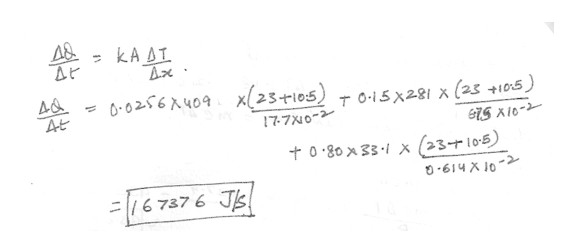 ΔQ/Δt = kA ΔT/Δx .
ΔQ/Δt = 0.0256 × 409 × (23+10.5)/17.7×10⁻² + 0.15 × 281 × (23+10.5)/ ×10⁻²
+ 0.80 × 33.1 × (23+10.5)/0.614 × 10⁻²
= 167376 J/s